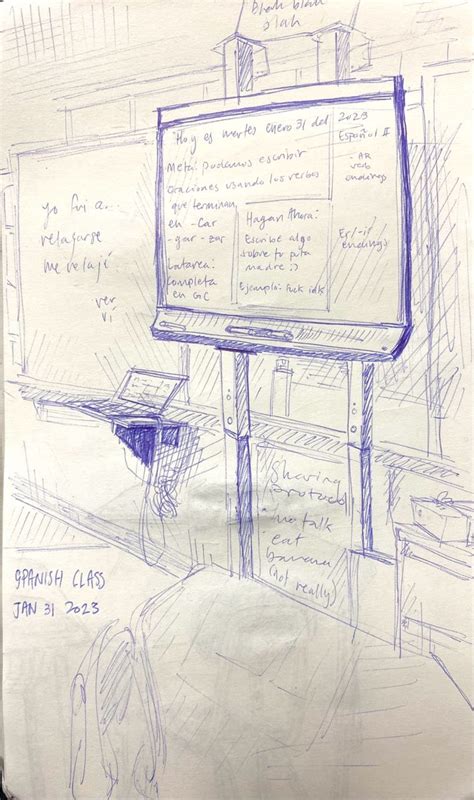 Blah blah
blah
Hoy es martes enero 31 del 2023
Español II
Meta: podamos escribir
oraciones usando los verbos
que terminan
en -car
-gar -zar
La tarea:
Completa
en GC
Hagan Ahora:
Escribe algo
sobre tu puta
madre :)
Ejemplo: fuck idk
-AR
verb
endings
Er/-ir
endings
yo fui a...
relajarse
me relajé
ver
vi
Sharing
protocol
no talk
eat
banana
(not really)
SPANISH CLASS
JAN 31 2023